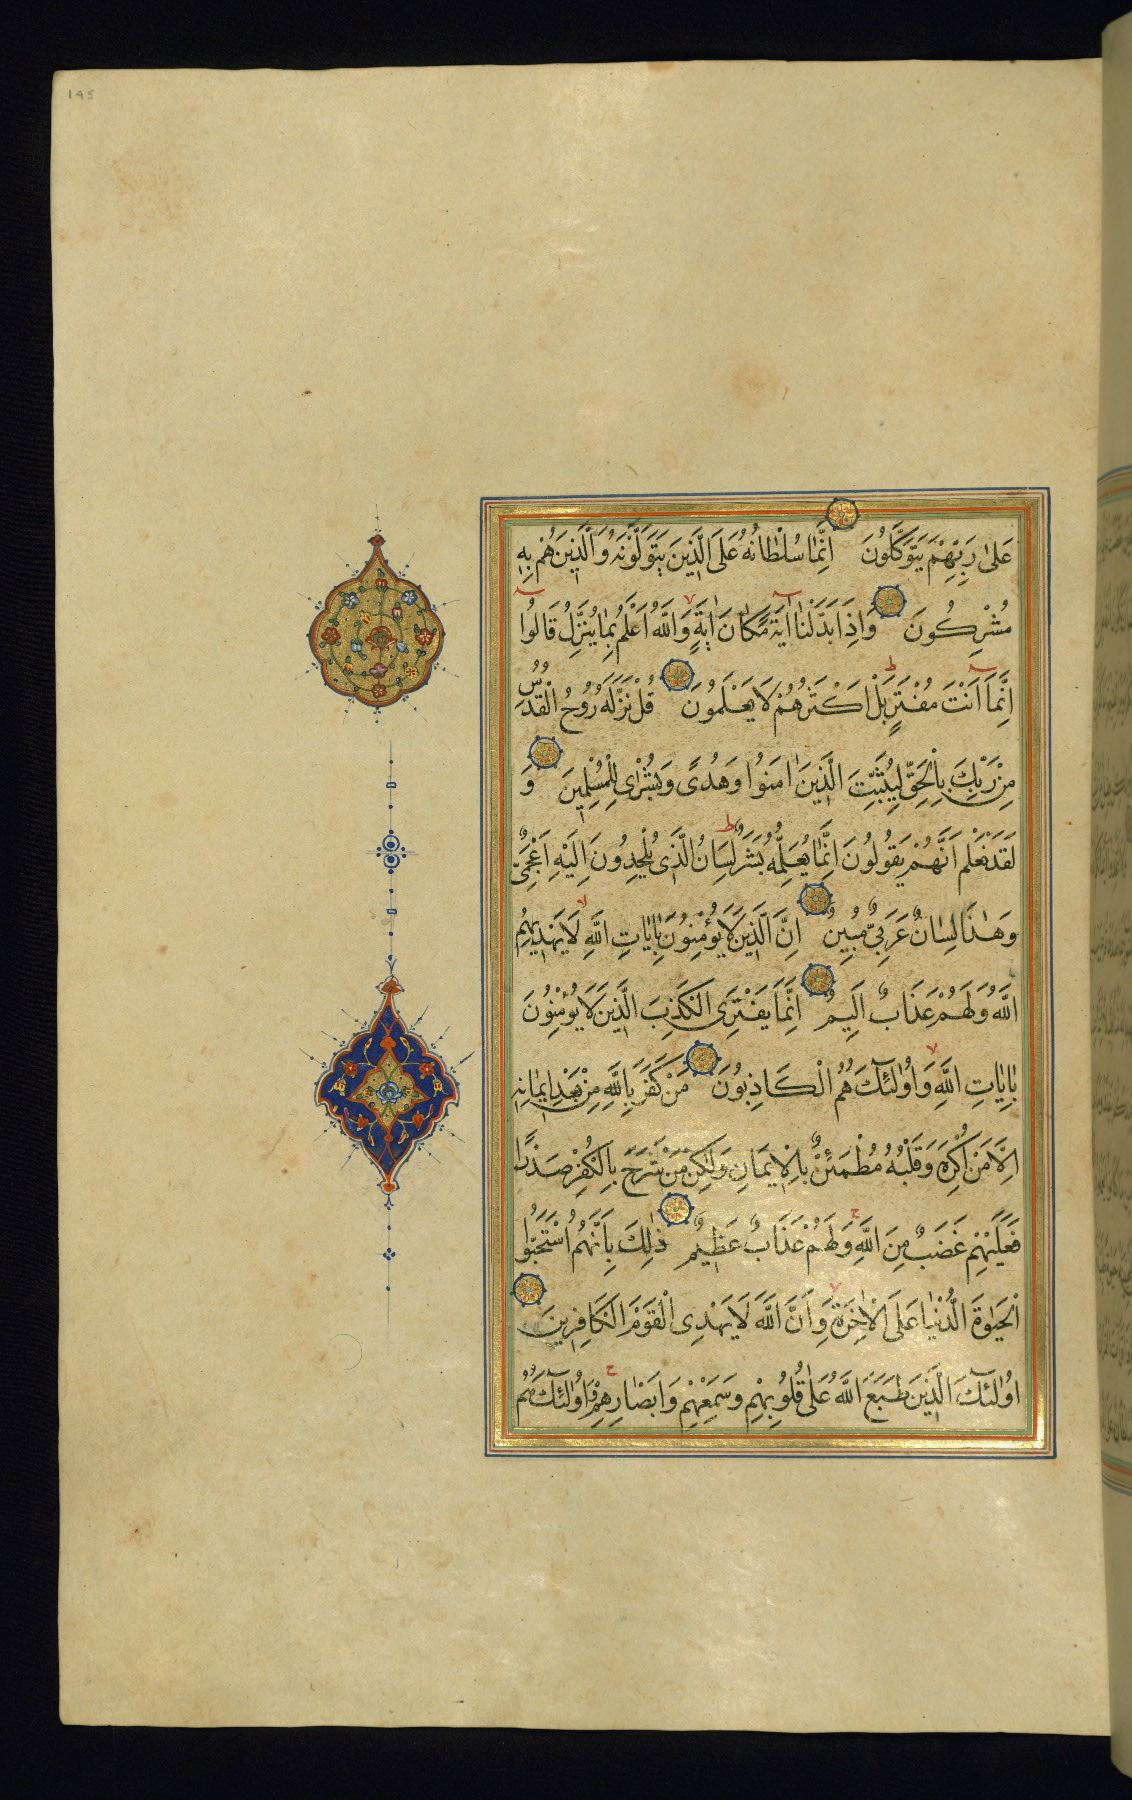 195
عَلٰى رَبِّهِمْ يَتَوَكَّلُونَ اِنَّمَا سُلْطَانُهُ عَلَى الَّذِينَ يَتَوَلَّوْنَهُ وَالَّذِينَ هُمْ بِهِ
مُشْرِكُونَ وَاِذَا بَدَّلْنَا اٰيَةً مَكَانَ اٰيَةٍ وَاللَّهُ اَعْلَمُ بِمَا يُنَزِّلُ قَالُوا
اِنَّمَا اَنْتَ مُفْتَرٍ بَلْ اَكْثَرُهُمْ لَا يَعْلَمُونَ قُلْ نَزَّلَهُ رُوحُ الْقُدُسِ
مِنْ رَبِّكَ بِالْحَقِّ لِيُثَبِّتَ الَّذِينَ اٰمَنُوا وَهُدًى وَبُشْرٰى لِلْمُسْلِمِينَ وَ
لَقَدْ نَعْلَمُ اَنَّهُمْ يَقُولُونَ اِنَّمَا يُعَلِّمُهُ بَشَرٌ لِسَانُ الَّذِى يُلْحِدُونَ اِلَيْهِ اَعْجَمِىٌّ
وَهٰذَا لِسَانٌ عَرَبِىٌّ مُبِينٌ اِنَّ الَّذِينَ لَا يُؤْمِنُونَ بِاٰيَاتِ اللَّهِ لَا يَهْدِيهِمُ
اللَّهُ وَلَهُمْ عَذَابٌ اَلِيمٌ اِنَّمَا يَفْتَرِى الْكَذِبَ الَّذِينَ لَا يُؤْمِنُونَ
بِاٰيَاتِ اللَّهِ وَاُولٰئِكَ هُمُ الْكَاذِبُونَ مَنْ كَفَرَ بِاللَّهِ مِنْ بَعْدِ اِيمَانِهِ
اِلَّا مَنْ اُكْرِهَ وَقَلْبُهُ مُطْمَئِنٌّ بِالْاِيمَانِ وَلٰكِنْ مَنْ شَرَحَ بِالْكُفْرِ صَدْرًا
فَعَلَيْهِمْ غَضَبٌ مِنَ اللَّهِ وَلَهُمْ عَذَابٌ عَظِيمٌ ذٰلِكَ بِاَنَّهُمُ اسْتَحَبُّوا
الْحَيٰوةَ الدُّنْيَا عَلَى الْاٰخِرَةِ وَاَنَّ اللَّهَ لَا يَهْدِى الْقَوْمَ الْكَافِرِينَ
اُولٰئِكَ الَّذِينَ طَبَعَ اللَّهُ عَلٰى قُلُوبِهِمْ وَسَمْعِهِمْ وَاَبْصَارِهِمْ وَاُولٰئِكَ هُمُ